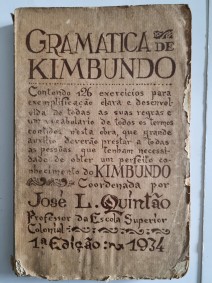 GRAMATICA DE
KIMBUNDO
Contendo 126 exercicios para
exemplificação clara e desenvol-
vida de todas as suas regras e
um vocabulário de todos os termos
contidos nesta obra, que grande
auxilio deverão prestar a todas
as pessoas que tenham necessi-
dade de obter um perfeito co-
nhecimento do KIMBUNDO
Coordenada por
José L. Quintão
Professor da Escola Superior
Colonial
1ª Edição 1934